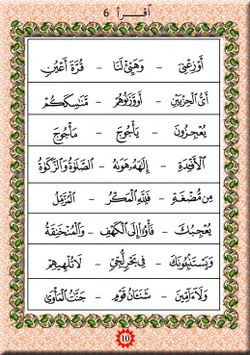 أقرأ 6
أَوْزِعْنِىٓ – وَهَيِّئْ لَنَا – قُرَّةَ أَعْيُنٍ
أَىُّ ٱلْحِزْبَيْنِ – أَوْ وَّزَنُوهُمْ – مَّنَاسِكَكُمْ
يُعْجِزُونَ – يَأْجُوجَ – مَأْجُوجَ
ٱلْأَفْـِٔدَةِ – إِلَٰهَهُۥ هَوَىٰهُ – ٱلصَّلَوٰةَ وَٱلزَّكَوٰةَ
مِن مُّضْغَةٍ – فَلِلَّهِ ٱلْمَكْرُ – ٱلْمُزَّمِّلُ
يُعْجِبُكَ – فَأْوُۥٓا۟ إِلَى ٱلْكَهْفِ – وَٱلْمُنْخَنِقَةُ
وَيَسْتَنۢبِـُٔونَكَ – فِى بَحْرٍ لُّجِّىٍّ – لَا تُلْهِيهِمْ
وَلَآ ءَآمِّينَ – شَنَـَٔانُ قَوْمٍ – جَنَّٰتُ ٱلْمَأْوَىٰ
10